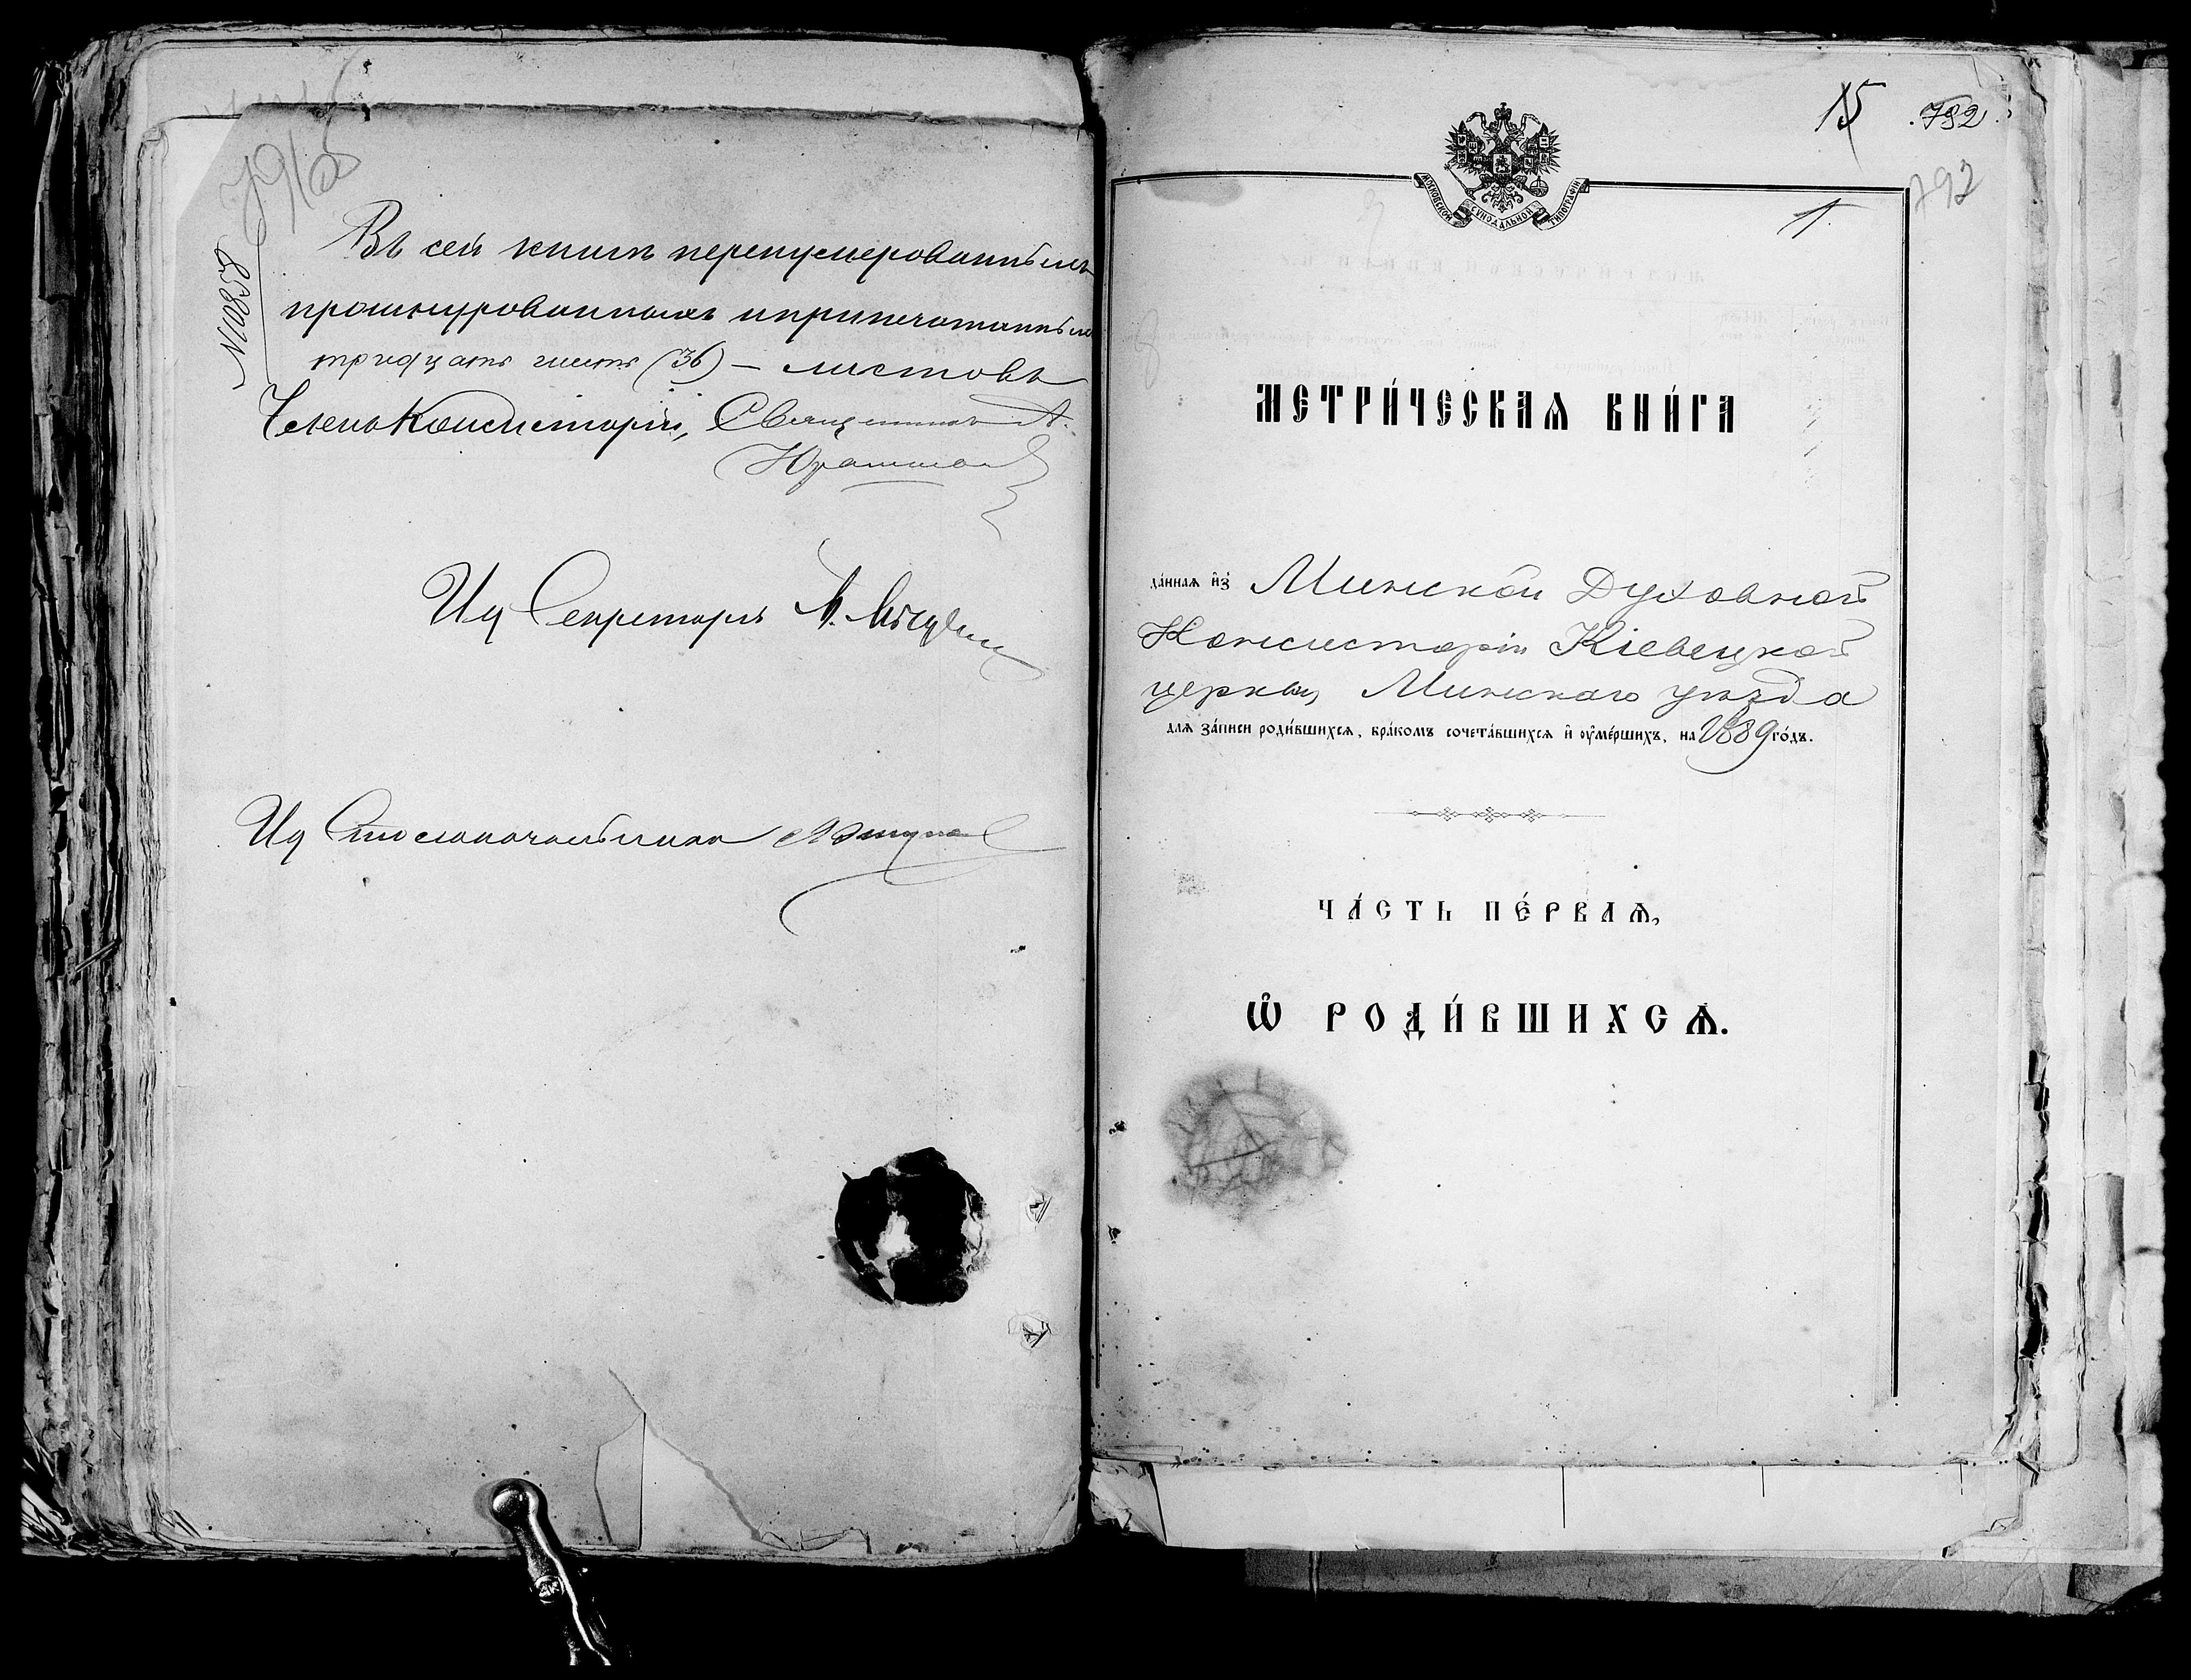 №10858
Въ сей книгѣ перенумерованныхъ
прошнурованныхъ и припечатанныхъ
тридцать шесть (36) — листовъ
Членъ Консисторіи, Священникъ А.
Ид Секретаря А.
Ид Столоначальника
15 792
792
1
МОСКОВСКОЙ СѴНОДАЛЬНОЙ ТИПОГРАФІИ
МЕТРИ́ЧЕСКАѦ КНИ́ГА
да́ннаѧ и҆з̾ Минской Духовной
Консисторіи Кіевецкой
церкви, Минскаго уѣзда
длѧ за́писи роди́вшихсѧ, бра́комъ сочета́вшихсѧ и҆ ᲂу҆ме́ршихъ, на 1889 го́дъ.
ЧА́СТЬ ПЕ́РВАѦ,
Ѡ҆ РОДИ́ВШИХСѦ.